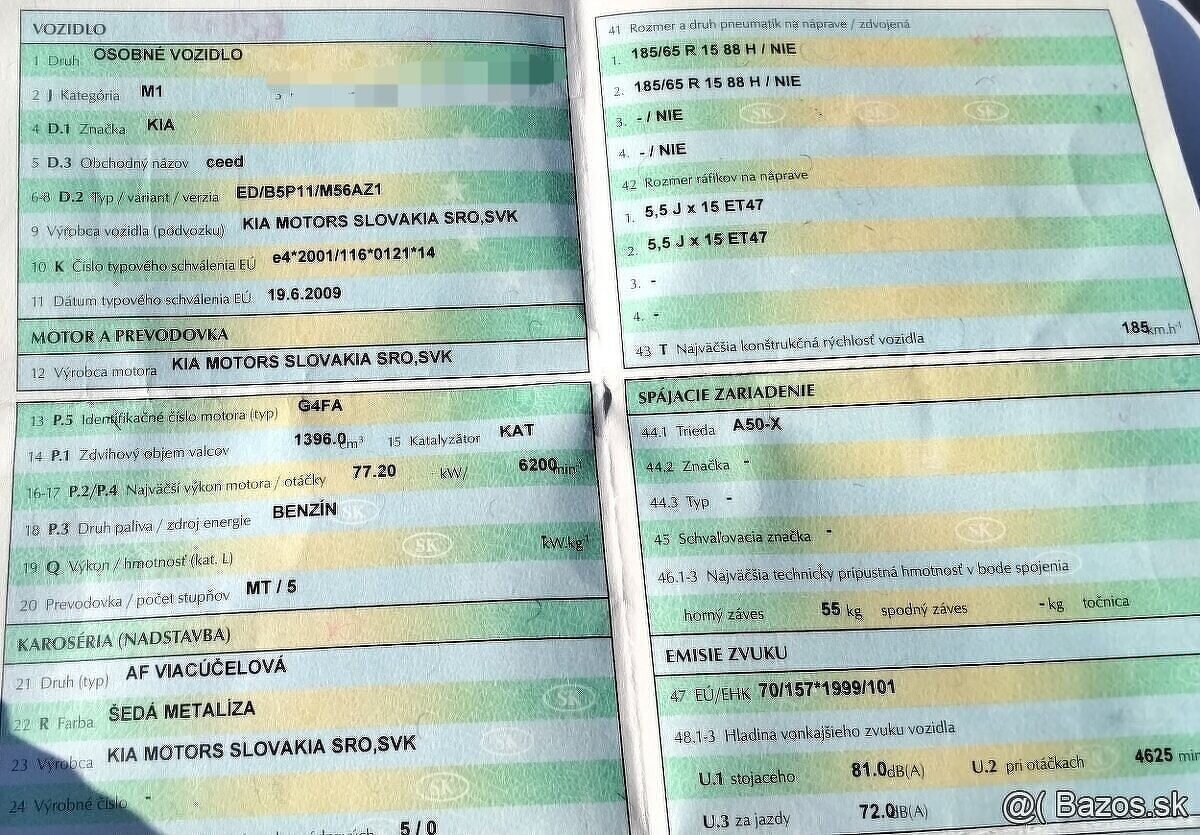 VOZIDLO
1 Druh OSOBNÉ VOZIDLO
2 J Kategória M1
4 D.1 Značka KIA
5 D.3 Obchodný názov ceed
6-8 D.2 Typ / variant / verzia ED/B5P11/M56AZ1
9 Výrobca vozidla (podvozku) KIA MOTORS SLOVAKIA SRO,SVK
10 K Číslo typového schválenia EÚ e4*2001/116*0121*14
11 Dátum typového schválenia EÚ 19.6.2009
MOTOR A PREVODOVKA
12 Výrobca motora KIA MOTORS SLOVAKIA SRO,SVK
13 P.5 Identifikačné číslo motora (typ) G4FA
14 P.1 Zdvihový objem valcov 1396.0 cm³ 15 Katalyzátor KAT
16-17 P.2/P.4 Najväčší výkon motora / otáčky 77.20 kW/ 6200 min-1
18 P.3 Druh paliva / zdroj energie BENZÍN
19 Q Výkon / hmotnosť (kat. L) kW.kg-1
20 Prevodovka / počet stupňov MT / 5
KAROSÉRIA (NADSTAVBA)
21 Druh (typ) AF VIACÚČELOVÁ
22 R Farba ŠEDÁ METALÍZA
23 Výrobca KIA MOTORS SLOVAKIA SRO,SVK
24 Výrobné číslo -
5 / 0
41 Rozmer a druh pneumatík na náprave / zdvojená
1. 185/65 R 15 88 H / NIE
2. 185/65 R 15 88 H / NIE
3. - / NIE
4. - / NIE
42 Rozmer ráfikov na náprave
1. 5,5 J x 15 ET47
2. 5,5 J x 15 ET47
3. -
4. -
43 T Najväčšia konštrukčná rýchlosť vozidla 185 km.h-1
SPÁJACIE ZARIADENIE
44.1 Trieda A50-X
44.2 Značka -
44.3 Typ -
45 Schvaľovacia značka -
46.1-3 Najväčšia technicky prípustná hmotnosť v bode spojenia
horný záves 55 kg spodný záves - kg točnica
EMISIE ZVUKU
47 EÚ/EHK 70/157*1999/101
48.1-3 Hladina vonkajšieho zvuku vozidla
U.1 stojaceho 81.0 dB(A) U.2 pri otáčkach 4625 min
U.3 za jazdy 72.0 dB(A)
@( Bazos.sk